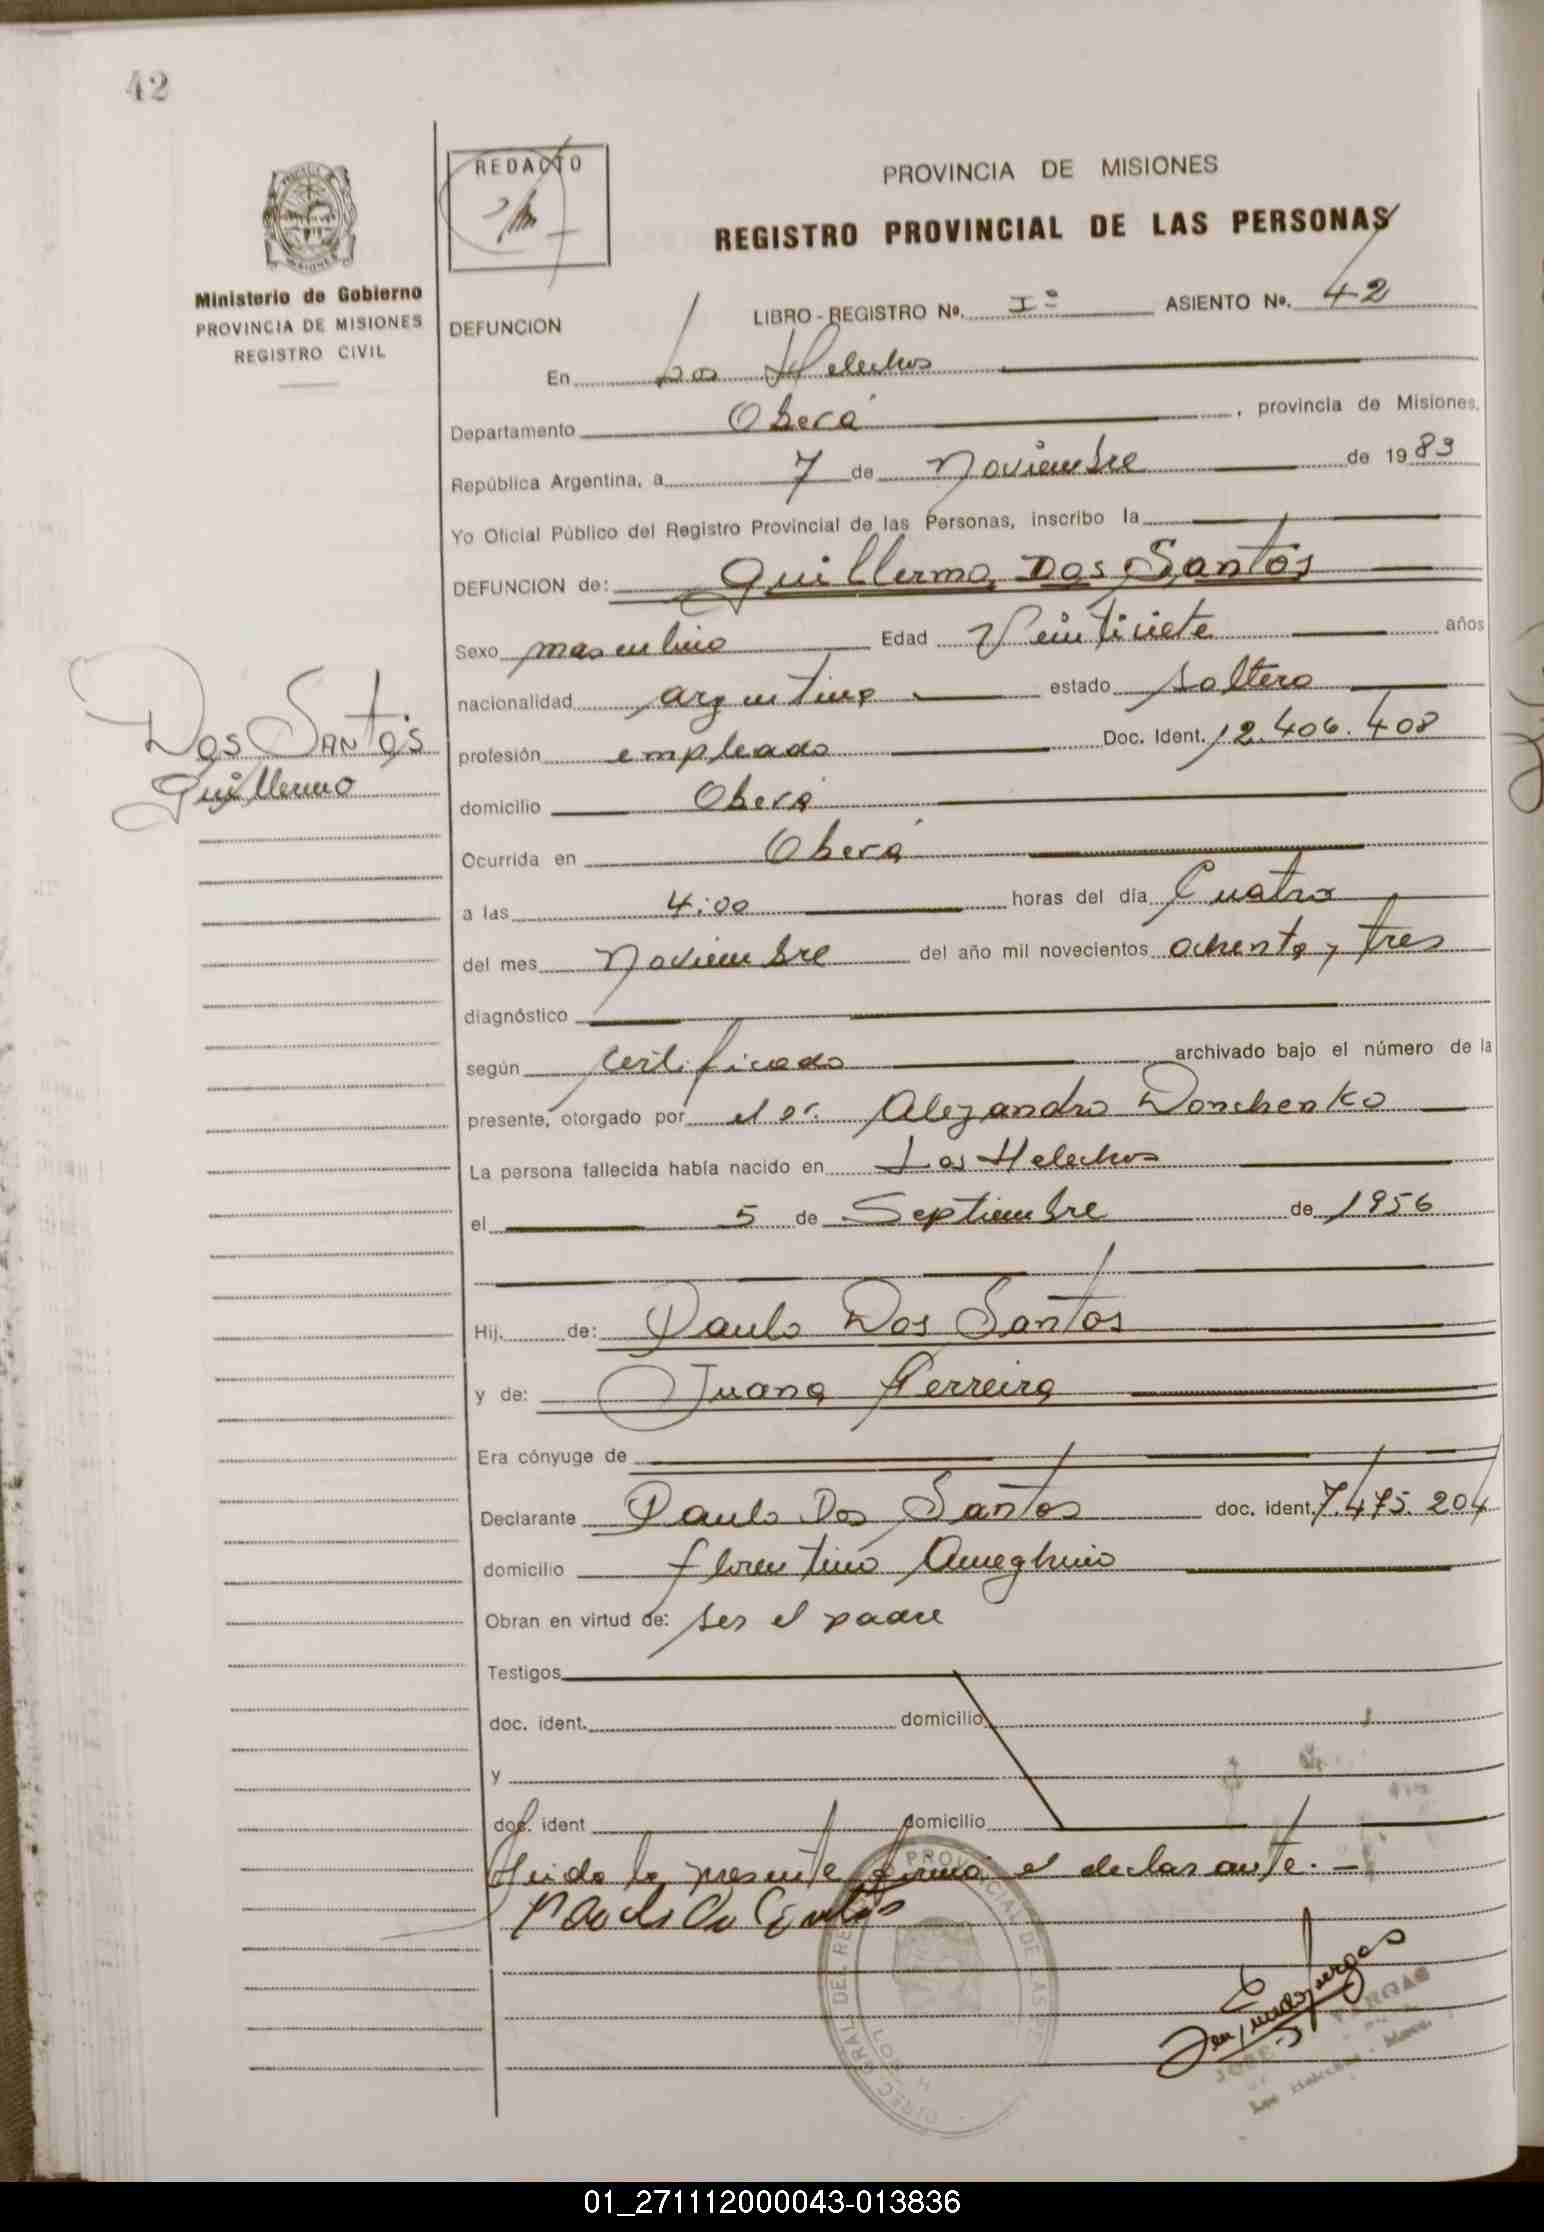 42
REDACTO
PROVINCIA DE MISIONES
REGISTRO PROVINCIAL DE LAS PERSONAS
Ministerio de Gobierno
PROVINCIA DE MISIONES
REGISTRO CIVIL
DEFUNCION LIBRO - REGISTRO Nº. Iº ASIENTO Nº. 42
En Los Helechos
Departamento Oberá, provincia de Misiones,
República Argentina, a 7 de Noviembre de 1983
Yo Oficial Público del Registro Provincial de las Personas, inscribo la
DEFUNCION de: Guillermo Dos Santos
Sexo masculino Edad Veintisiete años
nacionalidad argentina estado soltero
Dos Santos
Guillermo
profesión empleado Doc. Ident. 12.406.408
domicilio Oberá
Ocurrida en Oberá
a las 4:00 horas del día Cuatro
del mes Noviembre del año mil novecientos ochenta y tres
diagnóstico
según certificado archivado bajo el número de la
presente, otorgado por el Dr. Alejandro Donchenko
La persona fallecida había nacido en Los Helechos
el 5 de Septiembre de 1956
Hij. de: Paulo Dos Santos
y de: Juana Ferreira
Era cónyuge de
Declarante Paulo Dos Santos doc. ident. 7.475.204
domicilio Florentino Ameghino
Obran en virtud de: ser el padre
Testigos
doc. ident. domicilio
y
doc. ident domicilio
Leida la presente firma el declarante. -
01_271112000043-013836